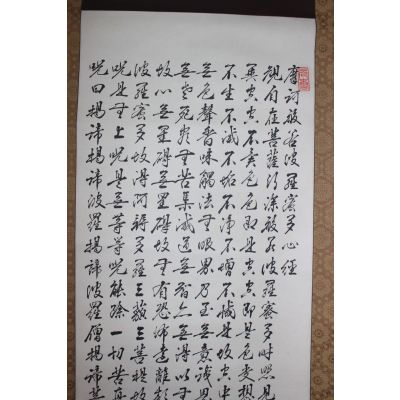 摩訶般若波羅蜜多心經
觀自在菩薩行深般若波羅蜜多時照見
異空空不異色色即是空空即是色受想
不生不滅不垢不淨不增不減是故空中
無色聲香味觸法無眼界乃至無意識界
無老死盡無苦集滅道無智亦無得以無
故心無罣礙無罣礙故無有恐怖遠離顛
波羅蜜多故得阿耨多羅三藐三菩提故
呪是無上呪是無等等呪能除一切苦真
呪曰揭諦揭諦波羅揭諦波羅僧揭諦菩